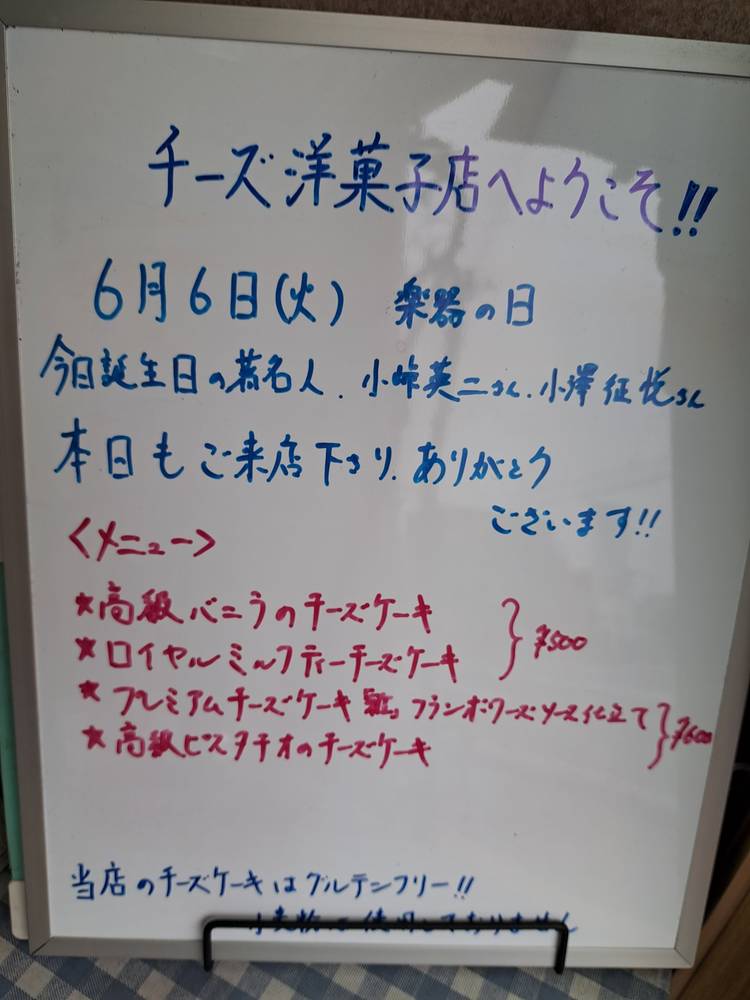 チーズ洋菓子店へようこそ!!
6月6日(火) 楽器の日
今日誕生日の著名人. 小峠英二さん. 小澤征悦さん
本日もご来店下さり. ありがとう
ございます!!
<メニュー>
★高級バニラのチーズケーキ
★ロイヤルミルクティーチーズケーキ
}¥500
★プレミアムチーズケーキ フランボワーズソース仕立て
★高級ピスタチオのチーズケーキ
}¥600
当店のチーズケーキはグルテンフリー!!
小麦物は使用しておりません